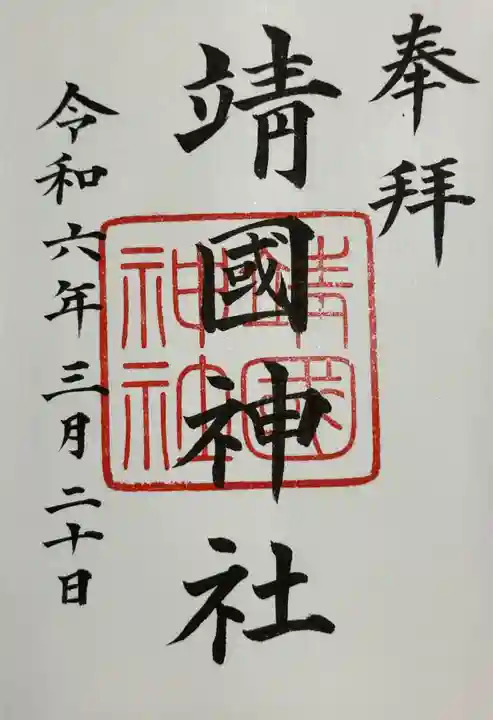 奉拝
靖國神社
令和六年三月二十日
靖國
神社